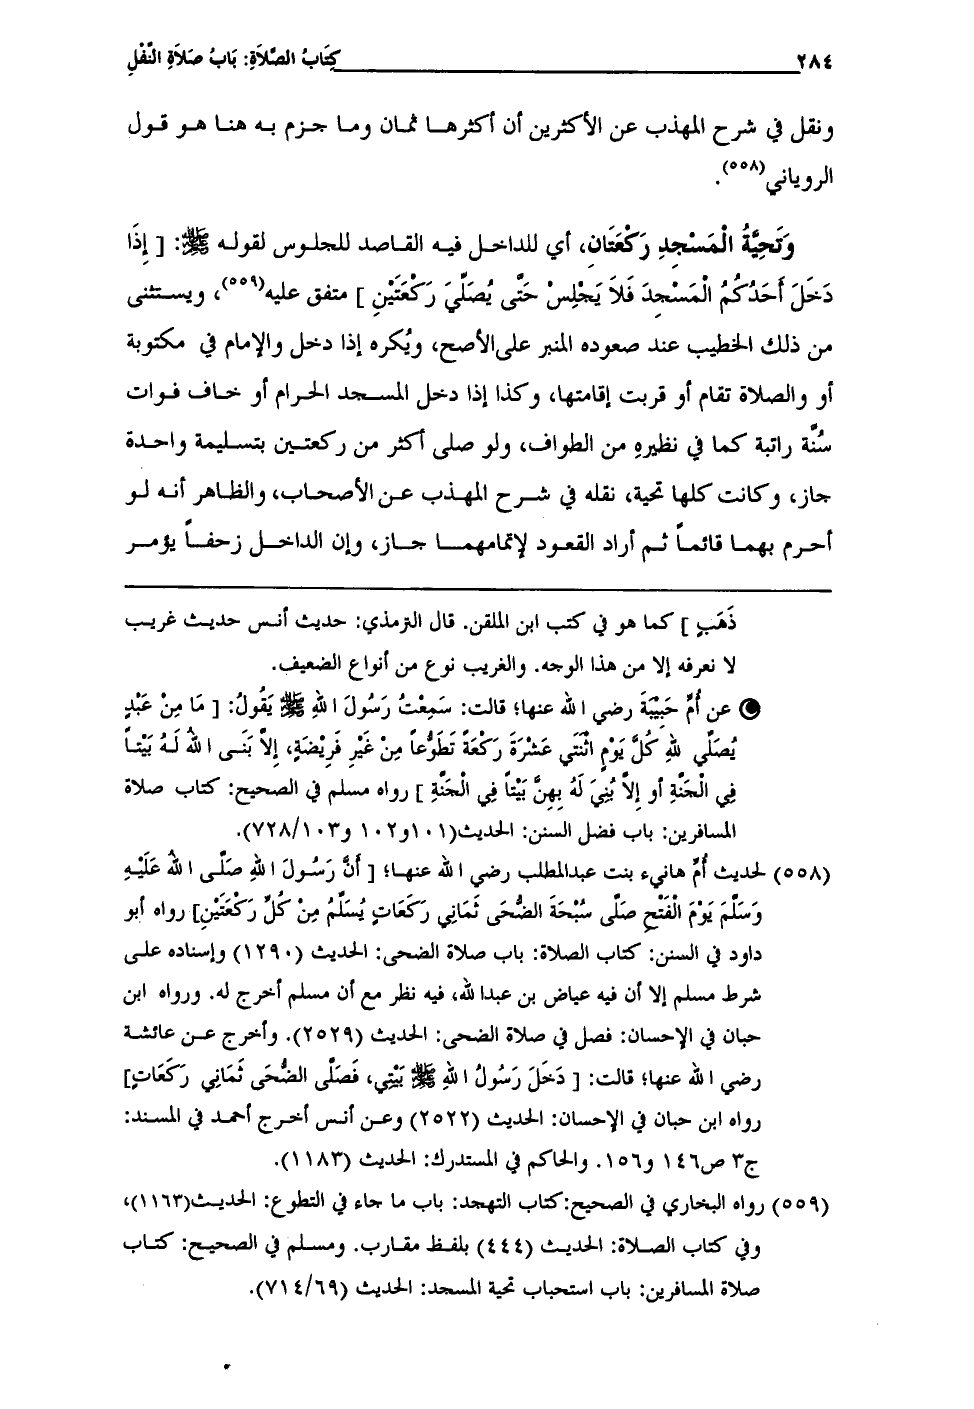 ٢٨٤ كِتَابُ الصَّلَاةِ: بَابُ صَلَاةِ النَّفْلِ
ونقل في شرح المهذب عن الأكثرين أن أكثرها ثمان وما جزم به هنا هو قول
الروياني(٥٥٨).
وَتَحِيَّةُ الْمَسْجِدِ رَكْعَتَانِ، أي للداخل فيه القاصد للجلوس لقوله ﷺ: [ إِذَا
دَخَلَ أَحَدُكُمُ الْمَسْجِدَ فَلاَ يَجْلِسْ حَتَّى يُصَلِّيَ رَكْعَتَيْنِ ] متفق عليه(٥٥٩)، ويستثنى
من ذلك الخطيب عند صعوده المنبر على الأصح، ويُكره إذا دخل والإمام في مكتوبة
أو والصلاة تقام أو قربت إقامتها، وكذا إذا دخل المسجد الحرام أو خاف فوات
سُنَّة راتبة كما في نظيرهِ من الطواف، ولو صلى أكثر من ركعتين بتسليمة واحدة
جاز، وكانت كلها تحية، نقله في شرح المهذب عن الأصحاب، والظاهر أنه لو
أحرم بهما قائماً ثم أراد القعود لإتمامهما جاز، وإن الداخل زحفاً يؤمر
ذَهَبٍ ] كما هو في كتب ابن الملقن. قال الترمذي: حديث أنس حديث غريب
لا نعرفه إلا من هذا الوجه. والغريب نوع من أنواع الضعيف.
عن أُمِّ حَبِيْبَةَ رضي الله عنها؛ قالت: سَمِعْتُ رَسُولَ اللهِ ﷺ يَقُولُ: [ مَا مِنْ عَبْدٍ
يُصَلِّي لِلهِ كُلَّ يَوْمٍ اثْنَتَي عَشْرَةَ رَكْعَةً تَطَوُّعاً مِنْ غَيْرِ فَرِيْضَةٍ، إِلاَّ بَنَى اللهُ لَهُ بَيْتاً
فِي الْجَنَّةِ أو إِلاَّ بُنِيَ لَهُ بِهِنَّ بَيْتاً فِي الْجَنَّةِ ] رواه مسلم في الصحيح: كتاب صلاة
المسافرين: باب فضل السنن: الحديث(١٠١و١٠٢ و٧٢٨/١٠٣).
(٥٥٨) لحديث أُمِّ هانيء بنت عبدالمطلب رضي الله عنها؛ [ أَنَّ رَسُولَ اللهِ صَلَّى اللهُ عَلَيْهِ
وَسَلَّمَ يَوْمَ الْفَتْحِ صَلَّى سُبْحَةَ الضُّحَى ثَمَانِي رَكَعَاتٍ يُسَلِّمُ مِنْ كُلِّ رَكْعَتَيْنِ] رواه أبو
داود في السنن: كتاب الصلاة: باب صلاة الضحى: الحديث (١٢٩٠) وإسناده على
شرط مسلم إلا أن فيه عياض بن عبدالله، فيه نظر مع أن مسلم أخرج له. ورواه ابن
حبان في الإحسان: فصل في صلاة الضحى: الحديث (٢٥٢٩). وأخرج عن عائشة
رضي الله عنها؛ قالت: [ دَخَلَ رَسُولُ اللهِ ﷺ بَيْتِي، فَصَلَّى الضُّحَى ثَمَانِي رَكَعَاتٍ]
رواه ابن حبان في الإحسان: الحديث (٢٥٢٢) وعن أنس أخرج أحمد في المسند:
ج٣ ص١٤٦ و١٥٦. والحاكم في المستدرك: الحديث (١١٨٣).
(٥٥٩) رواه البخاري في الصحيح:كتاب التهجد: باب ما جاء في التطوع: الحديث(١١٦٣)،
وفي كتاب الصلاة: الحديث (٤٤٤) بلفظ مقارب. ومسلم في الصحيح: كتاب
صلاة المسافرين: باب استحباب تحية المسجد: الحديث (٧١٤/٦٩).